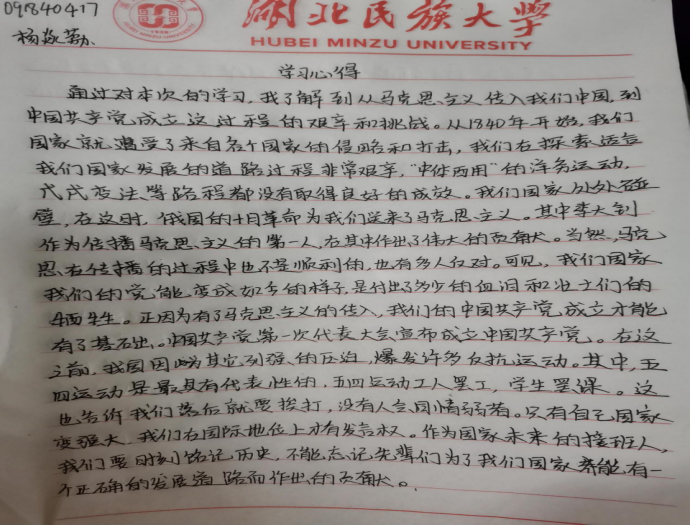 091840417
湖北民族大学
HUBEI MINZU UNIVERSITY
学习心得
通过对本次的学习，我了解到从马克思主义传入我们中国，到
中国共产党成立这过程的艰辛和挑战。从1840年开始，我们
国家就遭受了来自各个国家的侵略和打击，我们在探索适合
我们国家发展的道路过程非常艰辛，"中体西用"的洋务运动，
戊戌变法等路程都没有取得良好的成效。我们国家处处碰
壁，在这时，俄国的十月革命为我们送来了马克思主义。其中李大钊
作为传播马克思主义的第一人，在其中作出了伟大的贡献。当然，马克
思在传播的过程中也不是顺利的，也有多人反对。可见，我们国家
我们的党能变成如今的样子，是付出了多少的血泪和壮士们的
牺牲。正因为有了马克思主义的传入，我们的中国共产党成立才能
有了基石出。中国共产党第一次代表大会宣布成立中国共产党。在这
之前，我国因为其它列强的压迫，爆发许多反抗运动。其中，五
四运动是最具有代表性的，五四运动工人罢工，学生罢课。这
也告诉我们落后就要挨打，没有人会同情弱者。只有自己国家
变强大，我们在国际地位上才有发言权。作为国家未来的接班人，
我们要时刻铭记历史，不能忘记先辈们为了我们国家能有一
个正确的发展道路而作出的贡献。